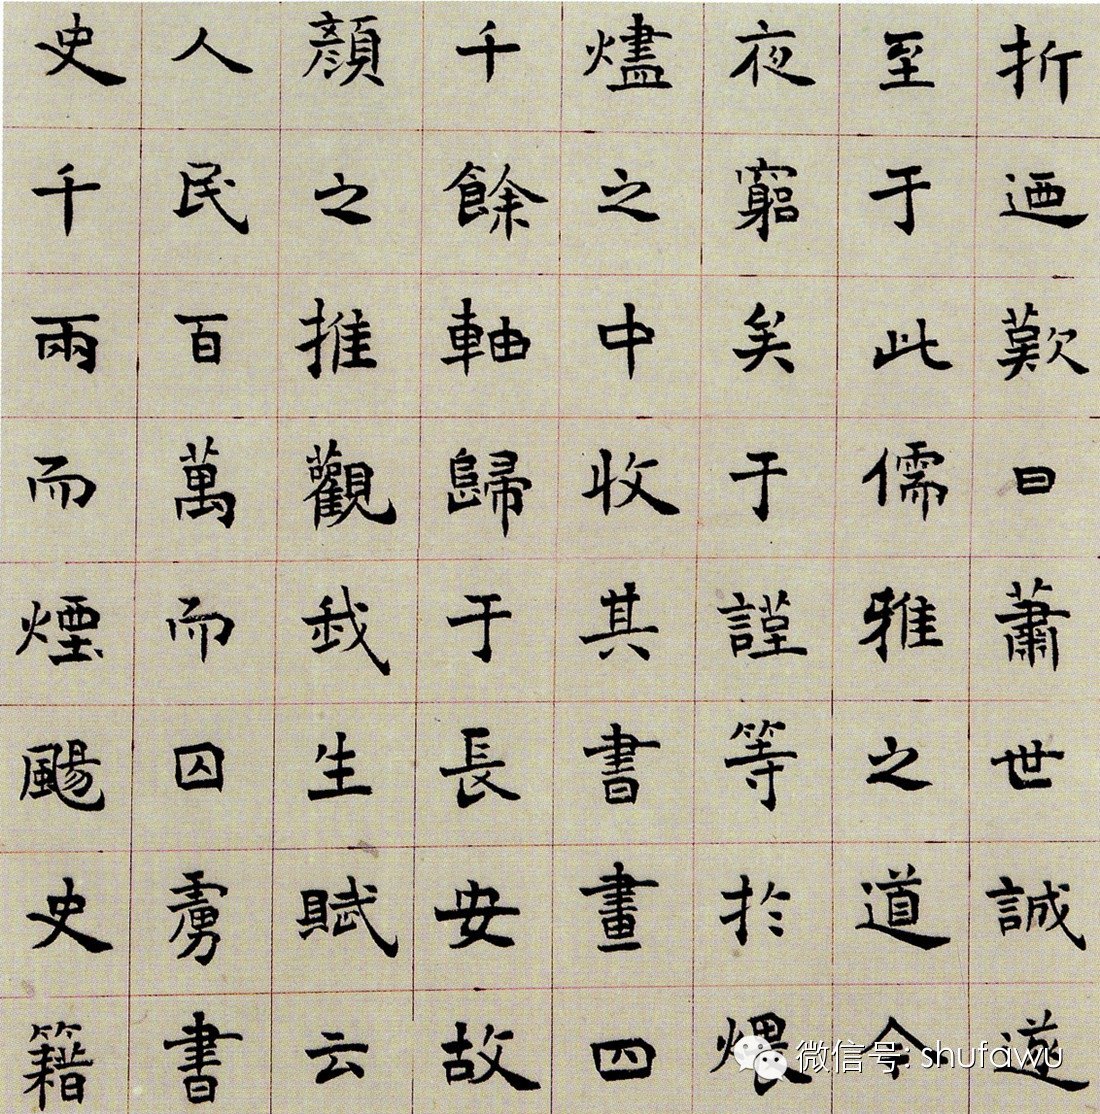 折迺歎曰蕭世誠遂
至于此儒雅之道今
夜窮矣于謹等於煨
燼之中收其書畫四
千餘軸歸于長安故
顏之推觀我生賦云
人民百萬而囚虜書
史千兩而煙颺史籍
微信号: shufawu